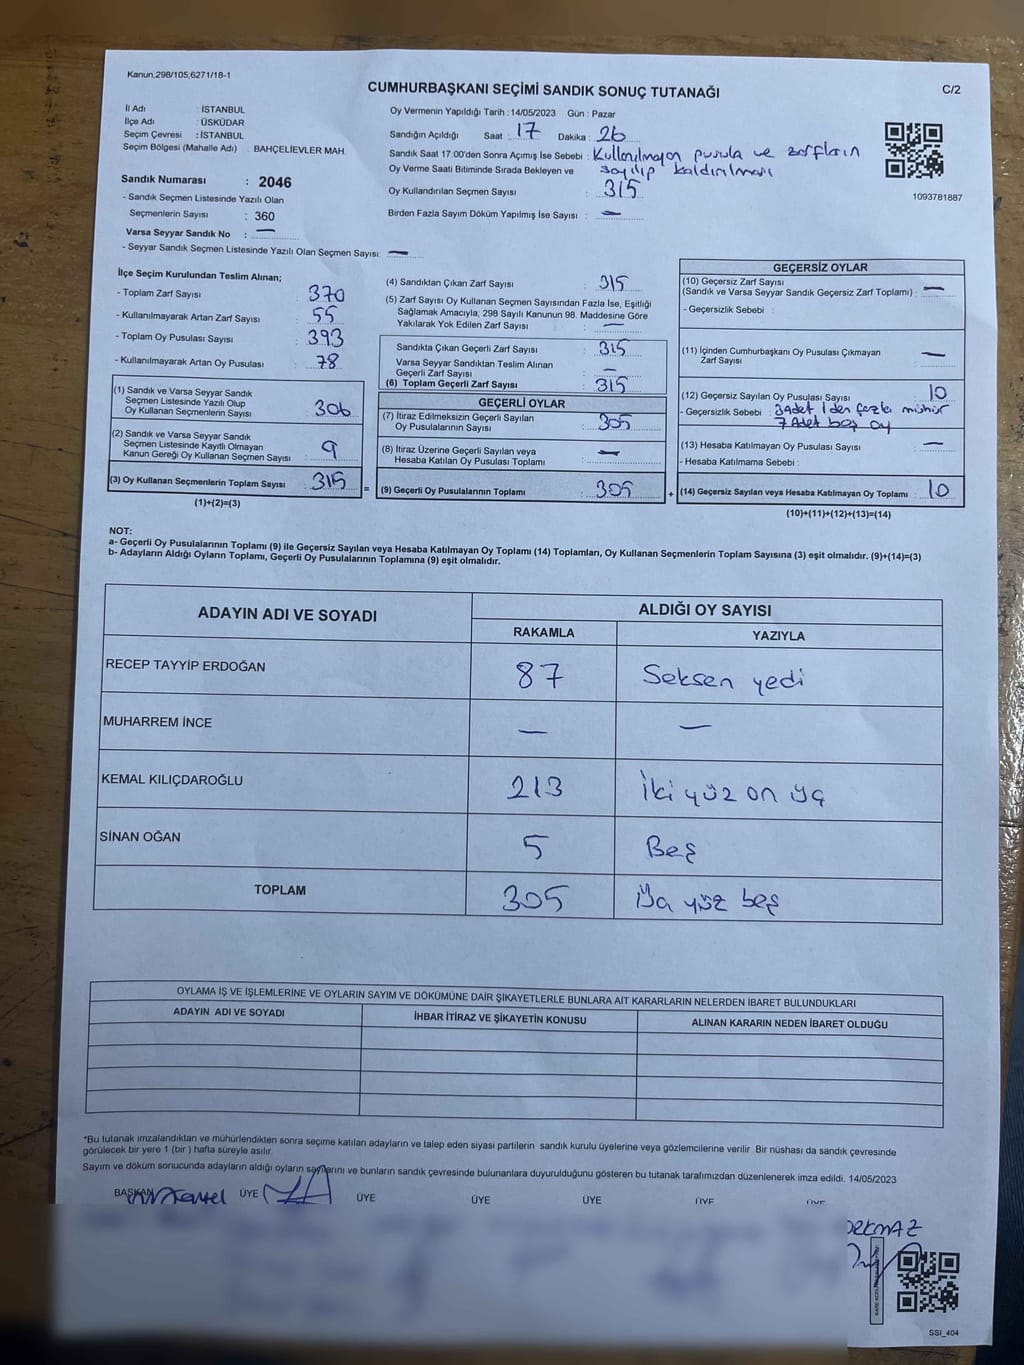 Kanun,298/105,6271/18-1
CUMHURBAŞKANI SEÇİMİ SANDIK SONUÇ TUTANAĞI
C/2
İl Adı : İSTANBUL
İlçe Adı : ÜSKÜDAR
Seçim Çevresi : İSTANBUL
Seçim Bölgesi (Mahalle Adı) : BAHÇELİEVLER MAH.
Sandık Numarası : 2046
- Sandık Seçmen Listesinde Yazılı Olan
Seçmenlerin Sayısı : 360
Varsa Seyyar Sandık No : —
- Seyyar Sandık Seçmen Listesinde Yazılı Olan Seçmen Sayısı: —
Oy Vermenin Yapıldığı Tarih : 14/05/2023 Gün : Pazar
Sandığın Açıldığı Saat : 17 Dakika : 26
Sandık Saat 17:00'den Sonra Açımış İse Sebebi : Kullanılmayan pusula ve zarfların
Oy Verme Saati Bitiminde Sırada Bekleyen ve sayılıp kaldırılması
Oy Kullandırılan Seçmen Sayısı : 315
Birden Fazla Sayım Döküm Yapılmış İse Sayısı : —
1093781887
İlçe Seçim Kurulundan Teslim Alınan;
- Toplam Zarf Sayısı : 370
- Kullanılmayarak Artan Zarf Sayısı : 55
- Toplam Oy Pusulası Sayısı : 393
- Kullanılmayarak Artan Oy Pusulası : 78
(1) Sandık ve Varsa Seyyar Sandık
Seçmen Listesinde Yazılı Olup
Oy Kullanan Seçmenlerin Sayısı : 306
(2) Sandık ve Varsa Seyyar Sandık
Seçmen Listesinde Kayıtlı Olmayan
Kanun Gereği Oy Kullanan Seçmen Sayısı : 9
(3) Oy Kullanan Seçmenlerin Toplam Sayısı : 315
(1)+(2)=(3)
(4) Sandıktan Çıkan Zarf Sayısı : 315
(5) Zarf Sayısı Oy Kullanan Seçmen Sayısından Fazla İse, Eşitliği
Sağlamak Amacıyla; 298 Sayılı Kanunun 98. Maddesine Göre
Yakılarak Yok Edilen Zarf Sayısı : —
Sandıkta Çıkan Geçerli Zarf Sayısı : 315
Varsa Seyyar Sandıktan Teslim Alınan
Geçerli Zarf Sayısı : —
(6) Toplam Geçerli Zarf Sayısı : 315
GEÇERLİ OYLAR
(7) İtiraz Edilmeksizin Geçerli Sayılan
Oy Pusulalarının Sayısı : 305
(8) İtiraz Üzerine Geçerli Sayılan veya
Hesaba Katılan Oy Pusulası Toplamı : —
= (9) Geçerli Oy Pusulalarının Toplamı : 305
GEÇERSİZ OYLAR
(10) Geçersiz Zarf Sayısı
(Sandık ve Varsa Seyyar Sandık Geçersiz Zarf Toplamı) : —
- Geçersizlik Sebebi :
(11) İçinden Cumhurbaşkanı Oy Pusulası Çıkmayan
Zarf Sayısı : —
(12) Geçersiz Sayılan Oy Pusulası Sayısı : 10
- Geçersizlik Sebebi : 3 Adet 1 den fazla mühür
7 Adet boş oy
(13) Hesaba Katılmayan Oy Pusulası Sayısı : —
- Hesaba Katılmama Sebebi :
+ (14) Geçersiz Sayılan veya Hesaba Katılmayan Oy Toplamı : 10
(10)+(11)+(12)+(13)=(14)
NOT:
a- Geçerli Oy Pusulalarının Toplamı (9) ile Geçersiz Sayılan veya Hesaba Katılmayan Oy Toplamı (14) Toplamları, Oy Kullanan Seçmenlerin Toplam Sayısına (3) eşit olmalıdır. (9)+(14)=(3)
b- Adayların Aldığı Oyların Toplamı, Geçerli Oy Pusulalarının Toplamına (9) eşit olmalıdır.
ADAYIN ADI VE SOYADI
ALDIĞI OY SAYISI
RAKAMLA YAZIYLA
RECEP TAYYİP ERDOĞAN 87 Seksen yedi
MUHARREM İNCE — —
KEMAL KILIÇDAROĞLU 213 İki yüz on üç
SİNAN OĞAN 5 Beş
TOPLAM 305 Üç yüz beş
OYLAMA İŞ VE İŞLEMLERİNE VE OYLARIN SAYIM VE DÖKÜMÜNE DAİR ŞİKAYETLERLE BUNLARA AİT KARARLARIN NELERDEN İBARET BULUNDUKLARI
ADAYIN ADI VE SOYADI İHBAR İTİRAZ VE ŞİKAYETİN KONUSU ALINAN KARARIN NEDEN İBARET OLDUĞU
*Bu tutanak imzalandıktan ve mühürlendikten sonra seçime katılan adayların ve talep eden siyasi partilerin sandık kurulu üyelerine veya gözlemcilerine verilir. Bir nüshası da sandık çevresinde
görülecek bir yere 1 (bir ) hafta süreyle asılır.
Sayım ve döküm sonucunda adayların aldığı oyların sayılarını ve bunların sandık çevresinde bulunanlara duyurulduğunu gösteren bu tutanak tarafımızdan düzenlenerek imza edildi. 14/05/2023
BAŞKAN ÜYE ÜYE ÜYE ÜYE ÜYE ÜYE
SSI_404